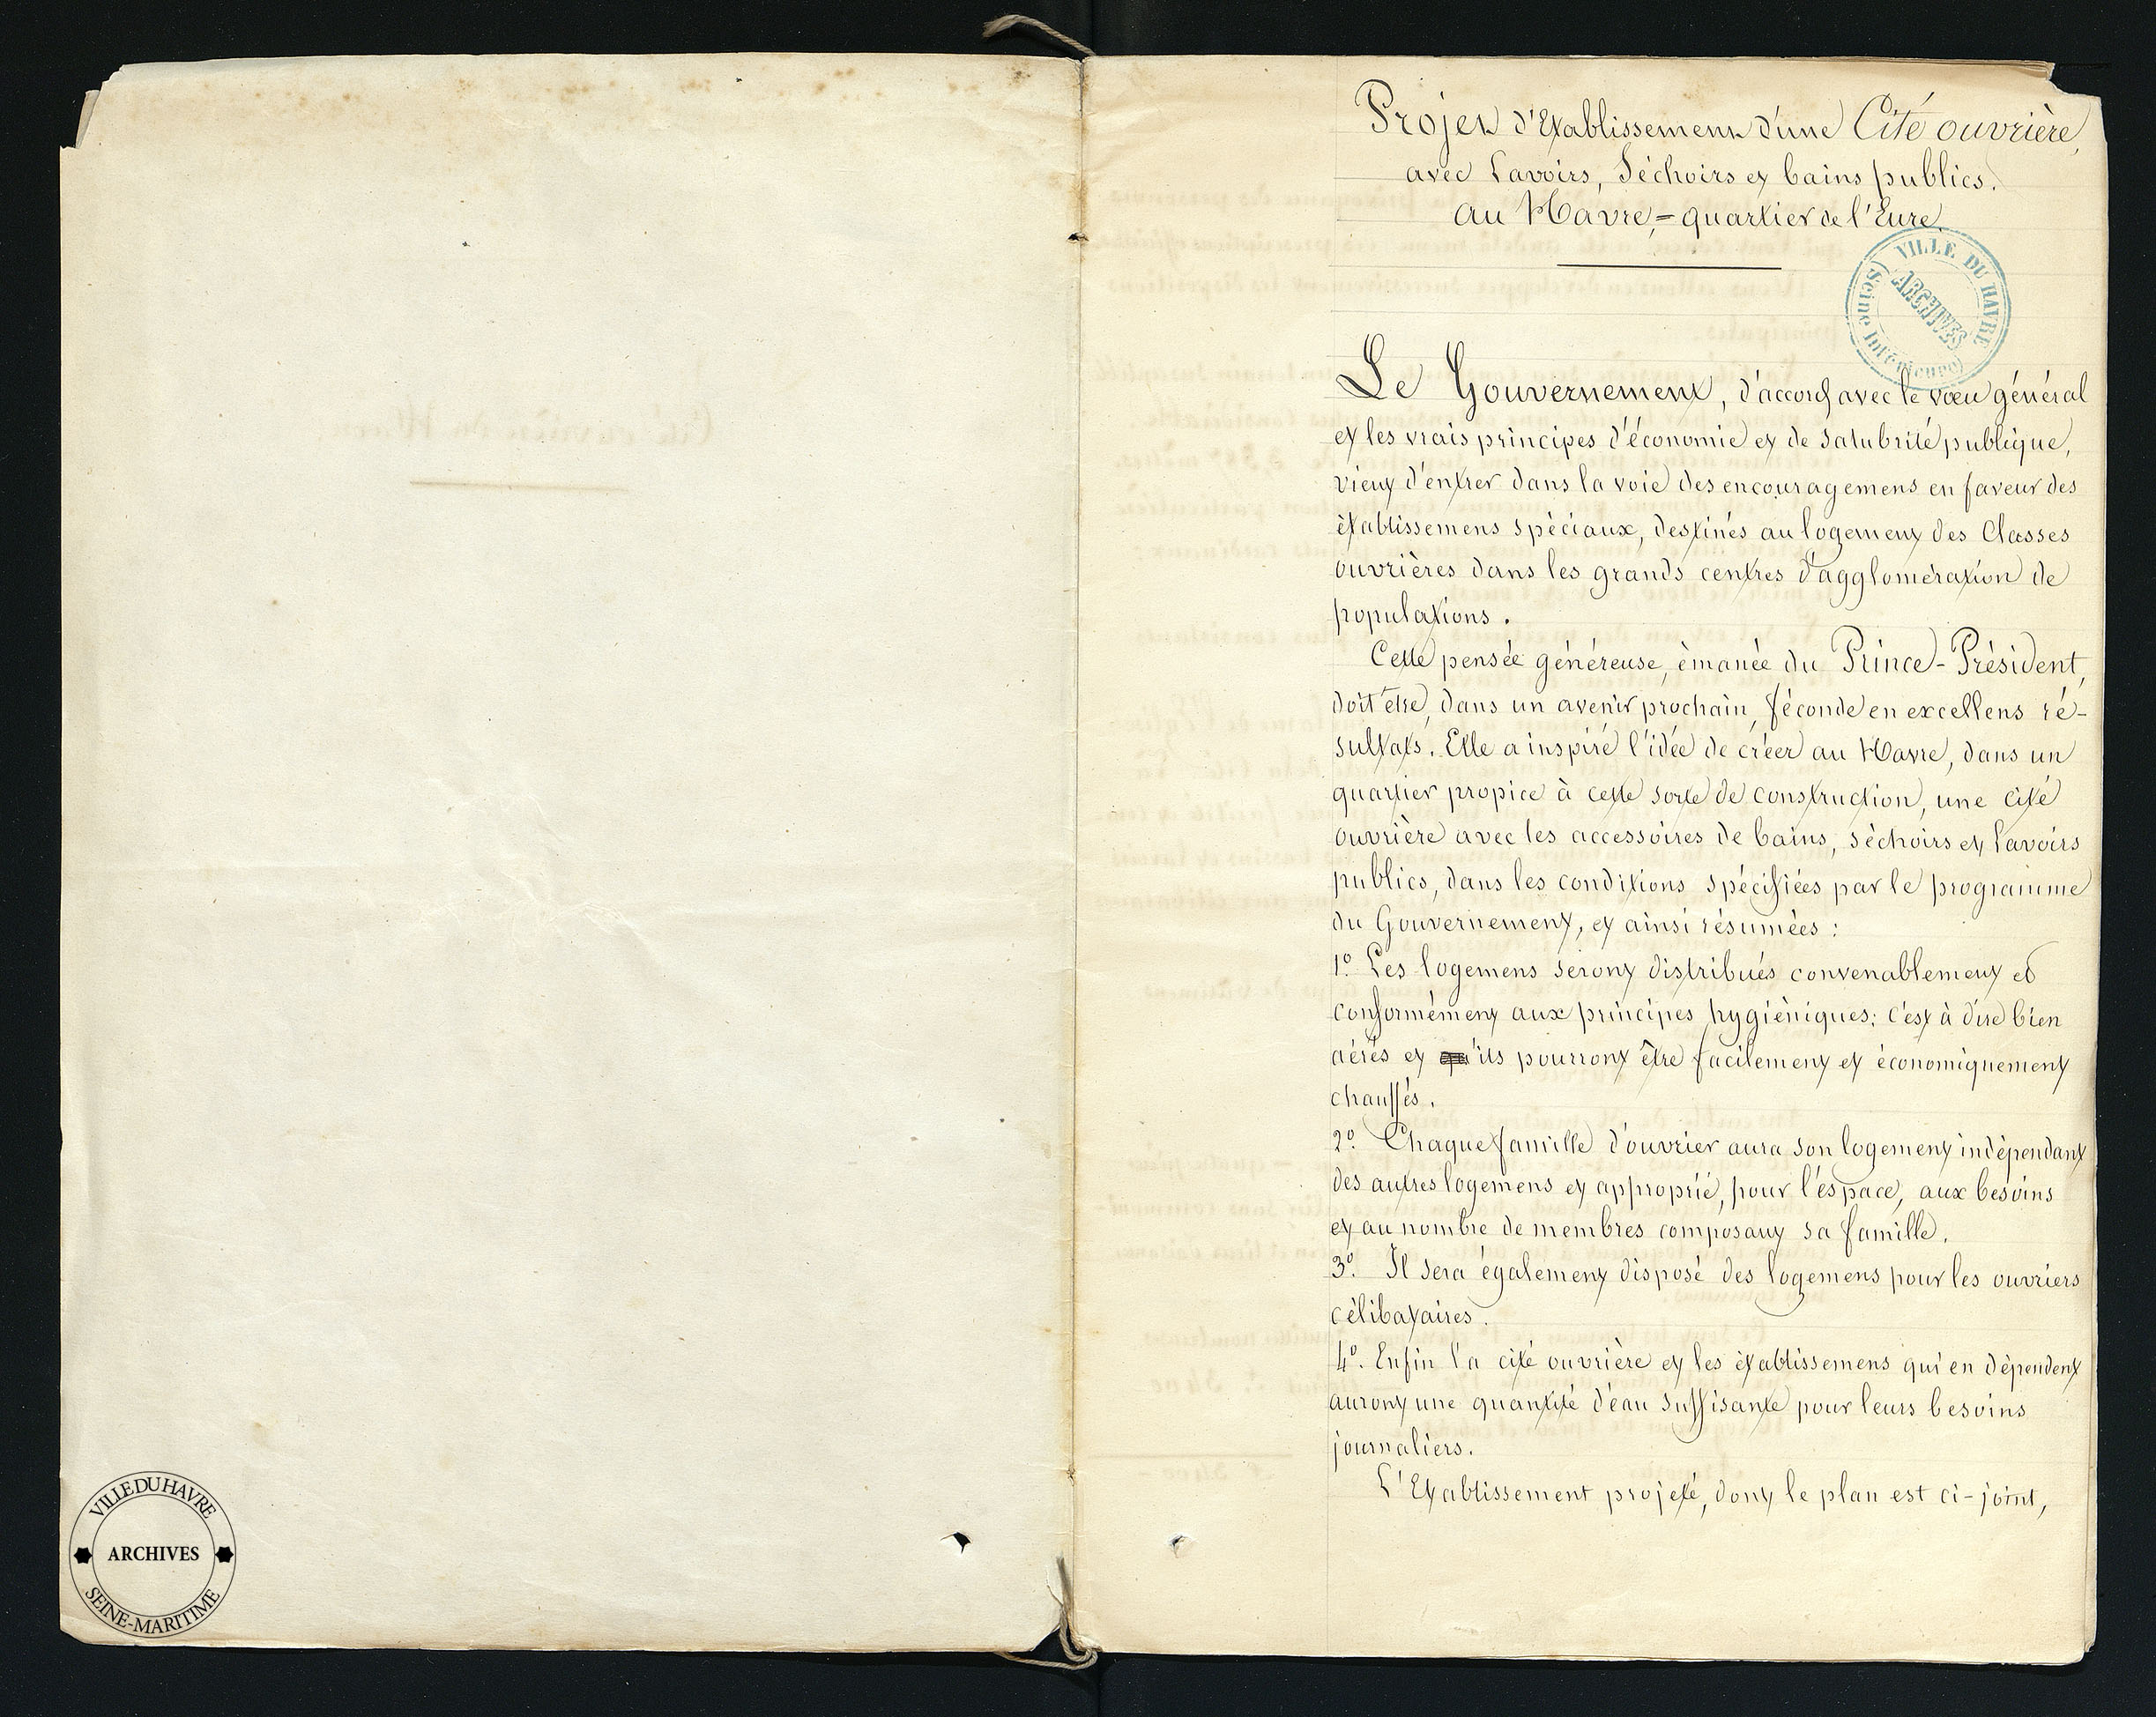 Projet d'Etablissement d'une Cité ouvrière,
avec Lavoirs, Séchoirs et bains publics.
au Havre, = quartier de l'Eure.
VILLE DU HAVRE
ARCHIVES
(Seine Inférieure)
Le Gouvernement, d'accord avec le voeu général
et les vrais principes d'économie et de salubrité publique,
vient d'entrer dans la voie des encouragemens en faveur des
établissemens spéciaux, destinés au logement des Classes
ouvrières dans les grands centres d'agglomération de
populations.
Cette pensée généreuse, émanée du Prince-Président,
doit être, dans un avenir prochain, féconde en excellens ré-
sultats. Elle a inspiré l'idée de créer au Havre, dans un
quartier propice à cette sorte de construction, une cité
ouvrière avec les accessoires de bains, séchoirs et lavoirs
publics, dans les conditions spécifiées par le programme
du Gouvernement, et ainsi résumées :
1º. Les logemens seront distribués convenablement et
conformément aux principes hygiéniques; c'est à dire bien
aérés et qu'ils pourront être facilement et économiquement
chauffés.
2º. Chaque famille d'ouvrier aura son logement indépendant
des autres logemens et approprié, pour l'espace, aux besoins
et au nombre de membres composant sa famille.
3º. Il sera également disposé des logemens pour les ouvriers
célibataires.
4º. Enfin la cité ouvrière et les établissemens qui en dépendent
auront une quantité d'eau suffisante pour leurs besoins
journaliers.
L'Etablissement projeté, dont le plan est ci-joint,
VILLE DU HAVRE
ARCHIVES
SEINE-MARITIME